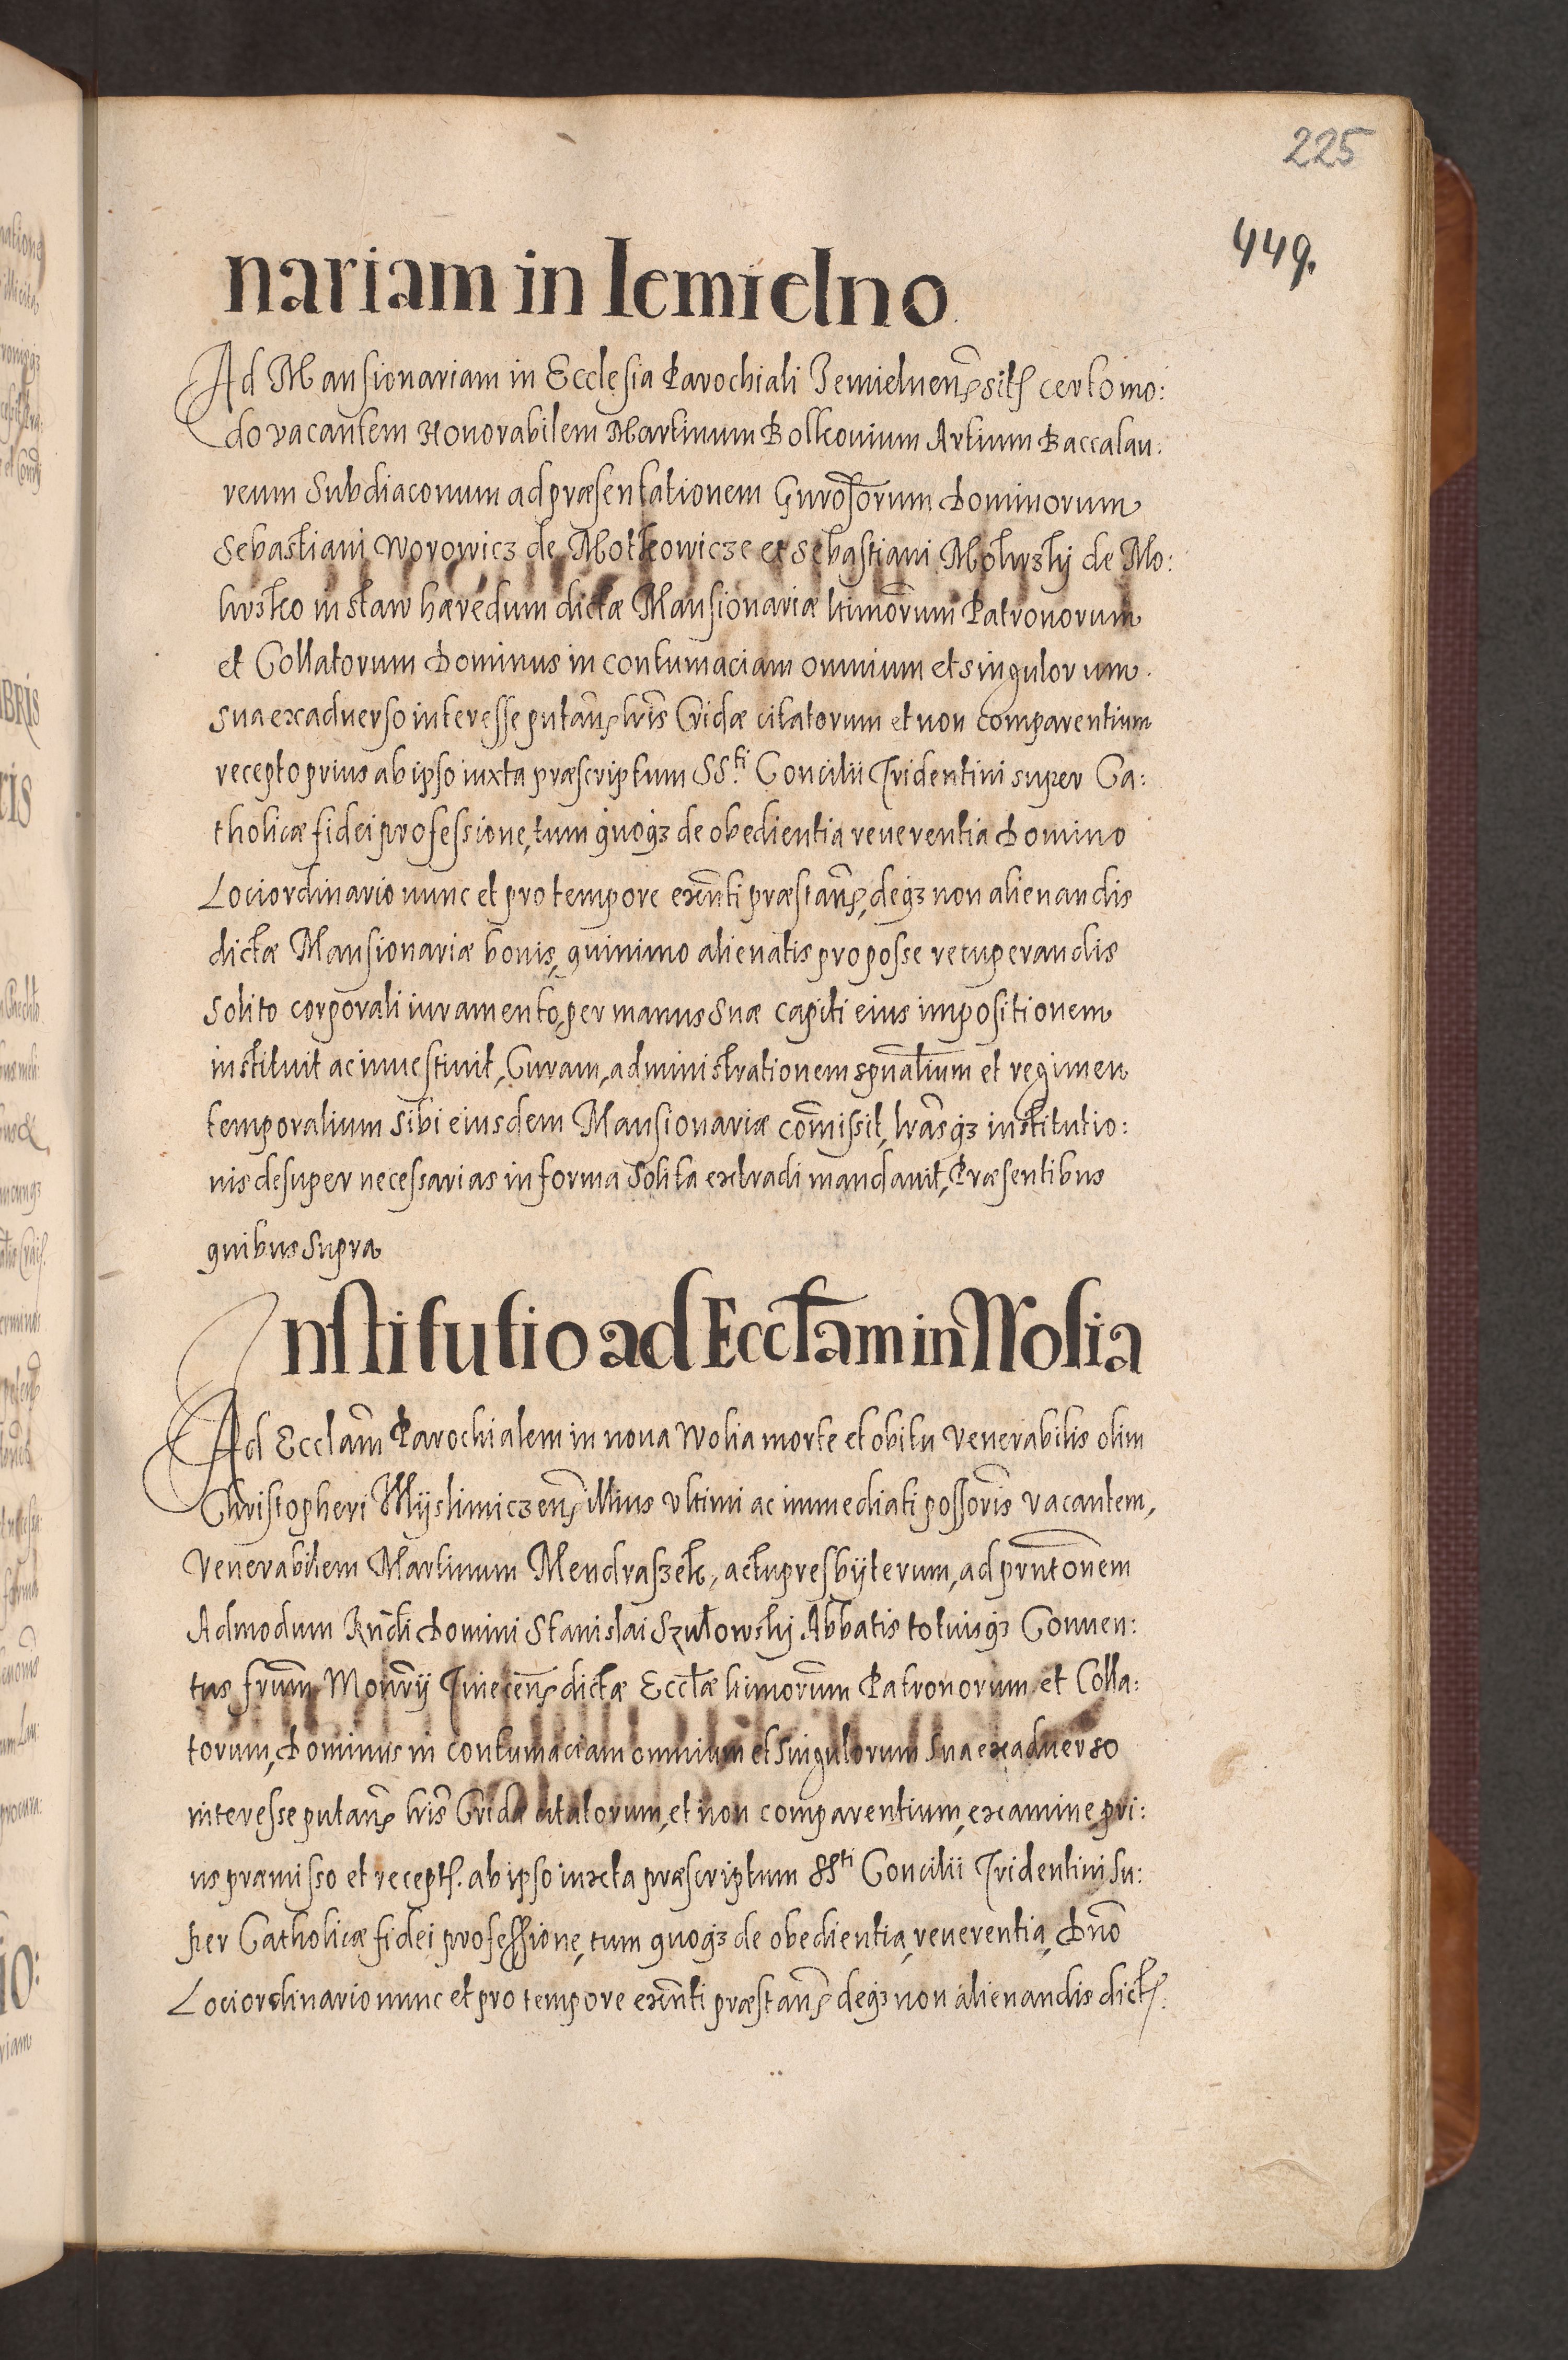 225
449.
nariam in Iemielno
Ad Mansionariam in Ecclesia Parochiali Iemielnens̃ sitꝭ certo mo:
do vacantem Honorabilem Martinum Bolkonium Artium Baccalau:
reum Subdiaconum ad præsentationem Gñrosorum Dominorum
Sebastiani Worowicz de Motkowicze et Sebastiani de Mo:
in staw hæredum dictæ Mansionariæ ltimor̃um Patronorum
et Collatorum Dominus in contumaciam omnium et singulorum
sua ex aduerso interesse putañꝭ lrĩs Cridæ citatorum et non comparentium
recepto prius ab ipso iuxta præscriptum SS.ti Concilii Tridentini super Ca:
tholicæ fidei professione, tum quoqꝫ de obedientia reuerentia Domino
Loci ordinario nunc et pro tempore exñti præstañꝭ, deqꝫ non alienandis
dictæ Mansionariæ bonis, quinimo alienatis pro posse recuperandis
solito corporali iuramento, per manus suæ capiti eius impositionem
instituit ac inuestiuit, Curam, administrationem spũalium et regimen
temporalium sibi eiusdem Mansionariæ com̃isit, lrãsqꝫ institutio:
nis desuper necessarias in forma solita extradi mandauit, Præsentibus
quibus supra
Institutio ad Eccłam in Wolia
Ad Ecclãm Parochialem in noua Wolia morte et obitu Venerabilis olim
Christopheri Myslimiczeñꝭ illius vltimi ac immediati possor̃is vacantem,
Venerabilem Martinum Mendraszek, actu presbÿterum, ad prñtonem
Admodum Rñdi Domini Stanislai Szułowskj Abbatis totiusqꝫ Conuen:
tus frũm Monr̃ij Tineceñꝭ dictæ Eccłæ ltimor̃um Patronorum et Colla:
torum, Dominus in contumaciam omnium et singulorum sua ex aduerso
interesse putañꝭ lrĩs Cridæ citatorum, et non comparentium, examine pri:
us præmisso et receptꝭ. ab ipso iuxta præscriptum SSti Concilii Tridentini su:
per Catholicæ fidei professione, tum quoqꝫ de obedientia, reuerentia, Dnõ
Loci ordinario nunc et pro tempore exñti præstañꝭ deqꝫ non alienandis dictꝭ.